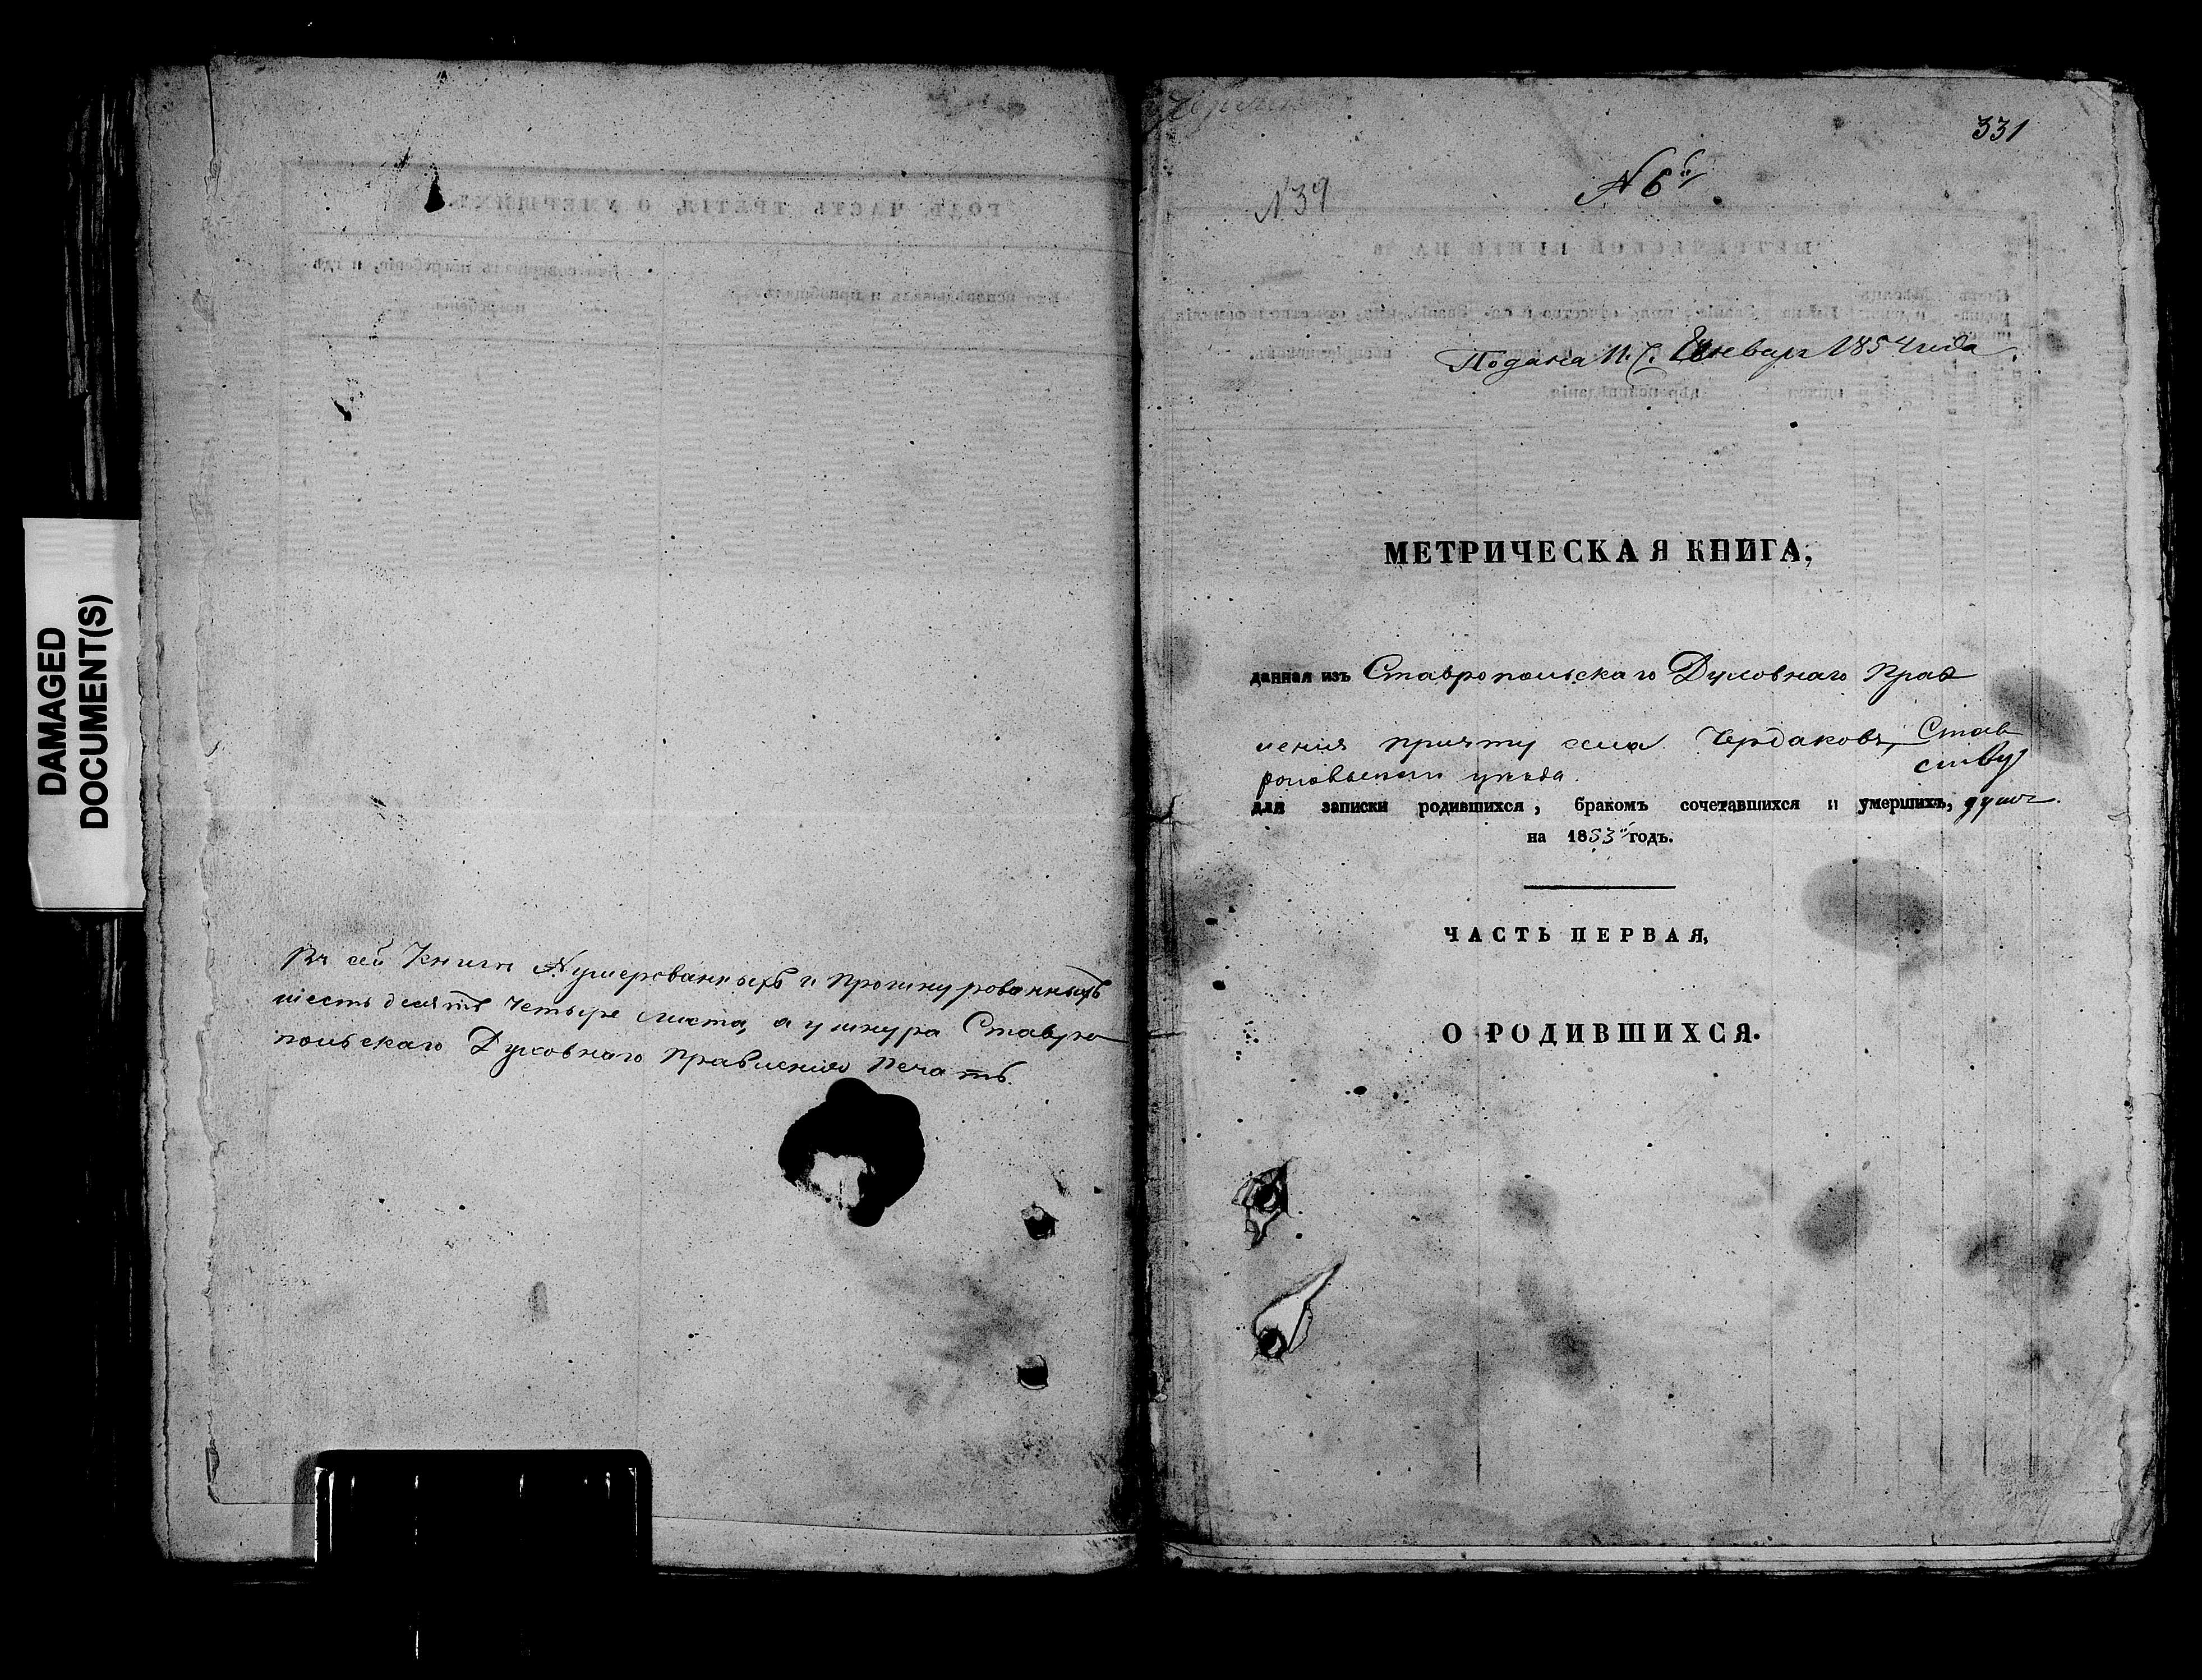 DAMAGED
DOCUMENT(S)
Въ сей Книгѣ Нумерованныхъ и прошнурованныхъ
шестьдесятъ четыре листа, а у шнура Ставро
польскаго Духовнаго Правленія печать.
331
N 39
N 6й
Подана 11. Генваря 1854 года.
МЕТРИЧЕСКАЯ КНИГА,
данная изъ Ставропольскаго Духовнаго Прав
ленія причту села Чердаковъ, Став
ропольскаго уѣзда.
для записки родившихся, бракомъ сочетавшихся и умершихъ,
на 1853й годъ.
ЧАСТЬ ПЕРВАЯ,
О РОДИВШИХСЯ.